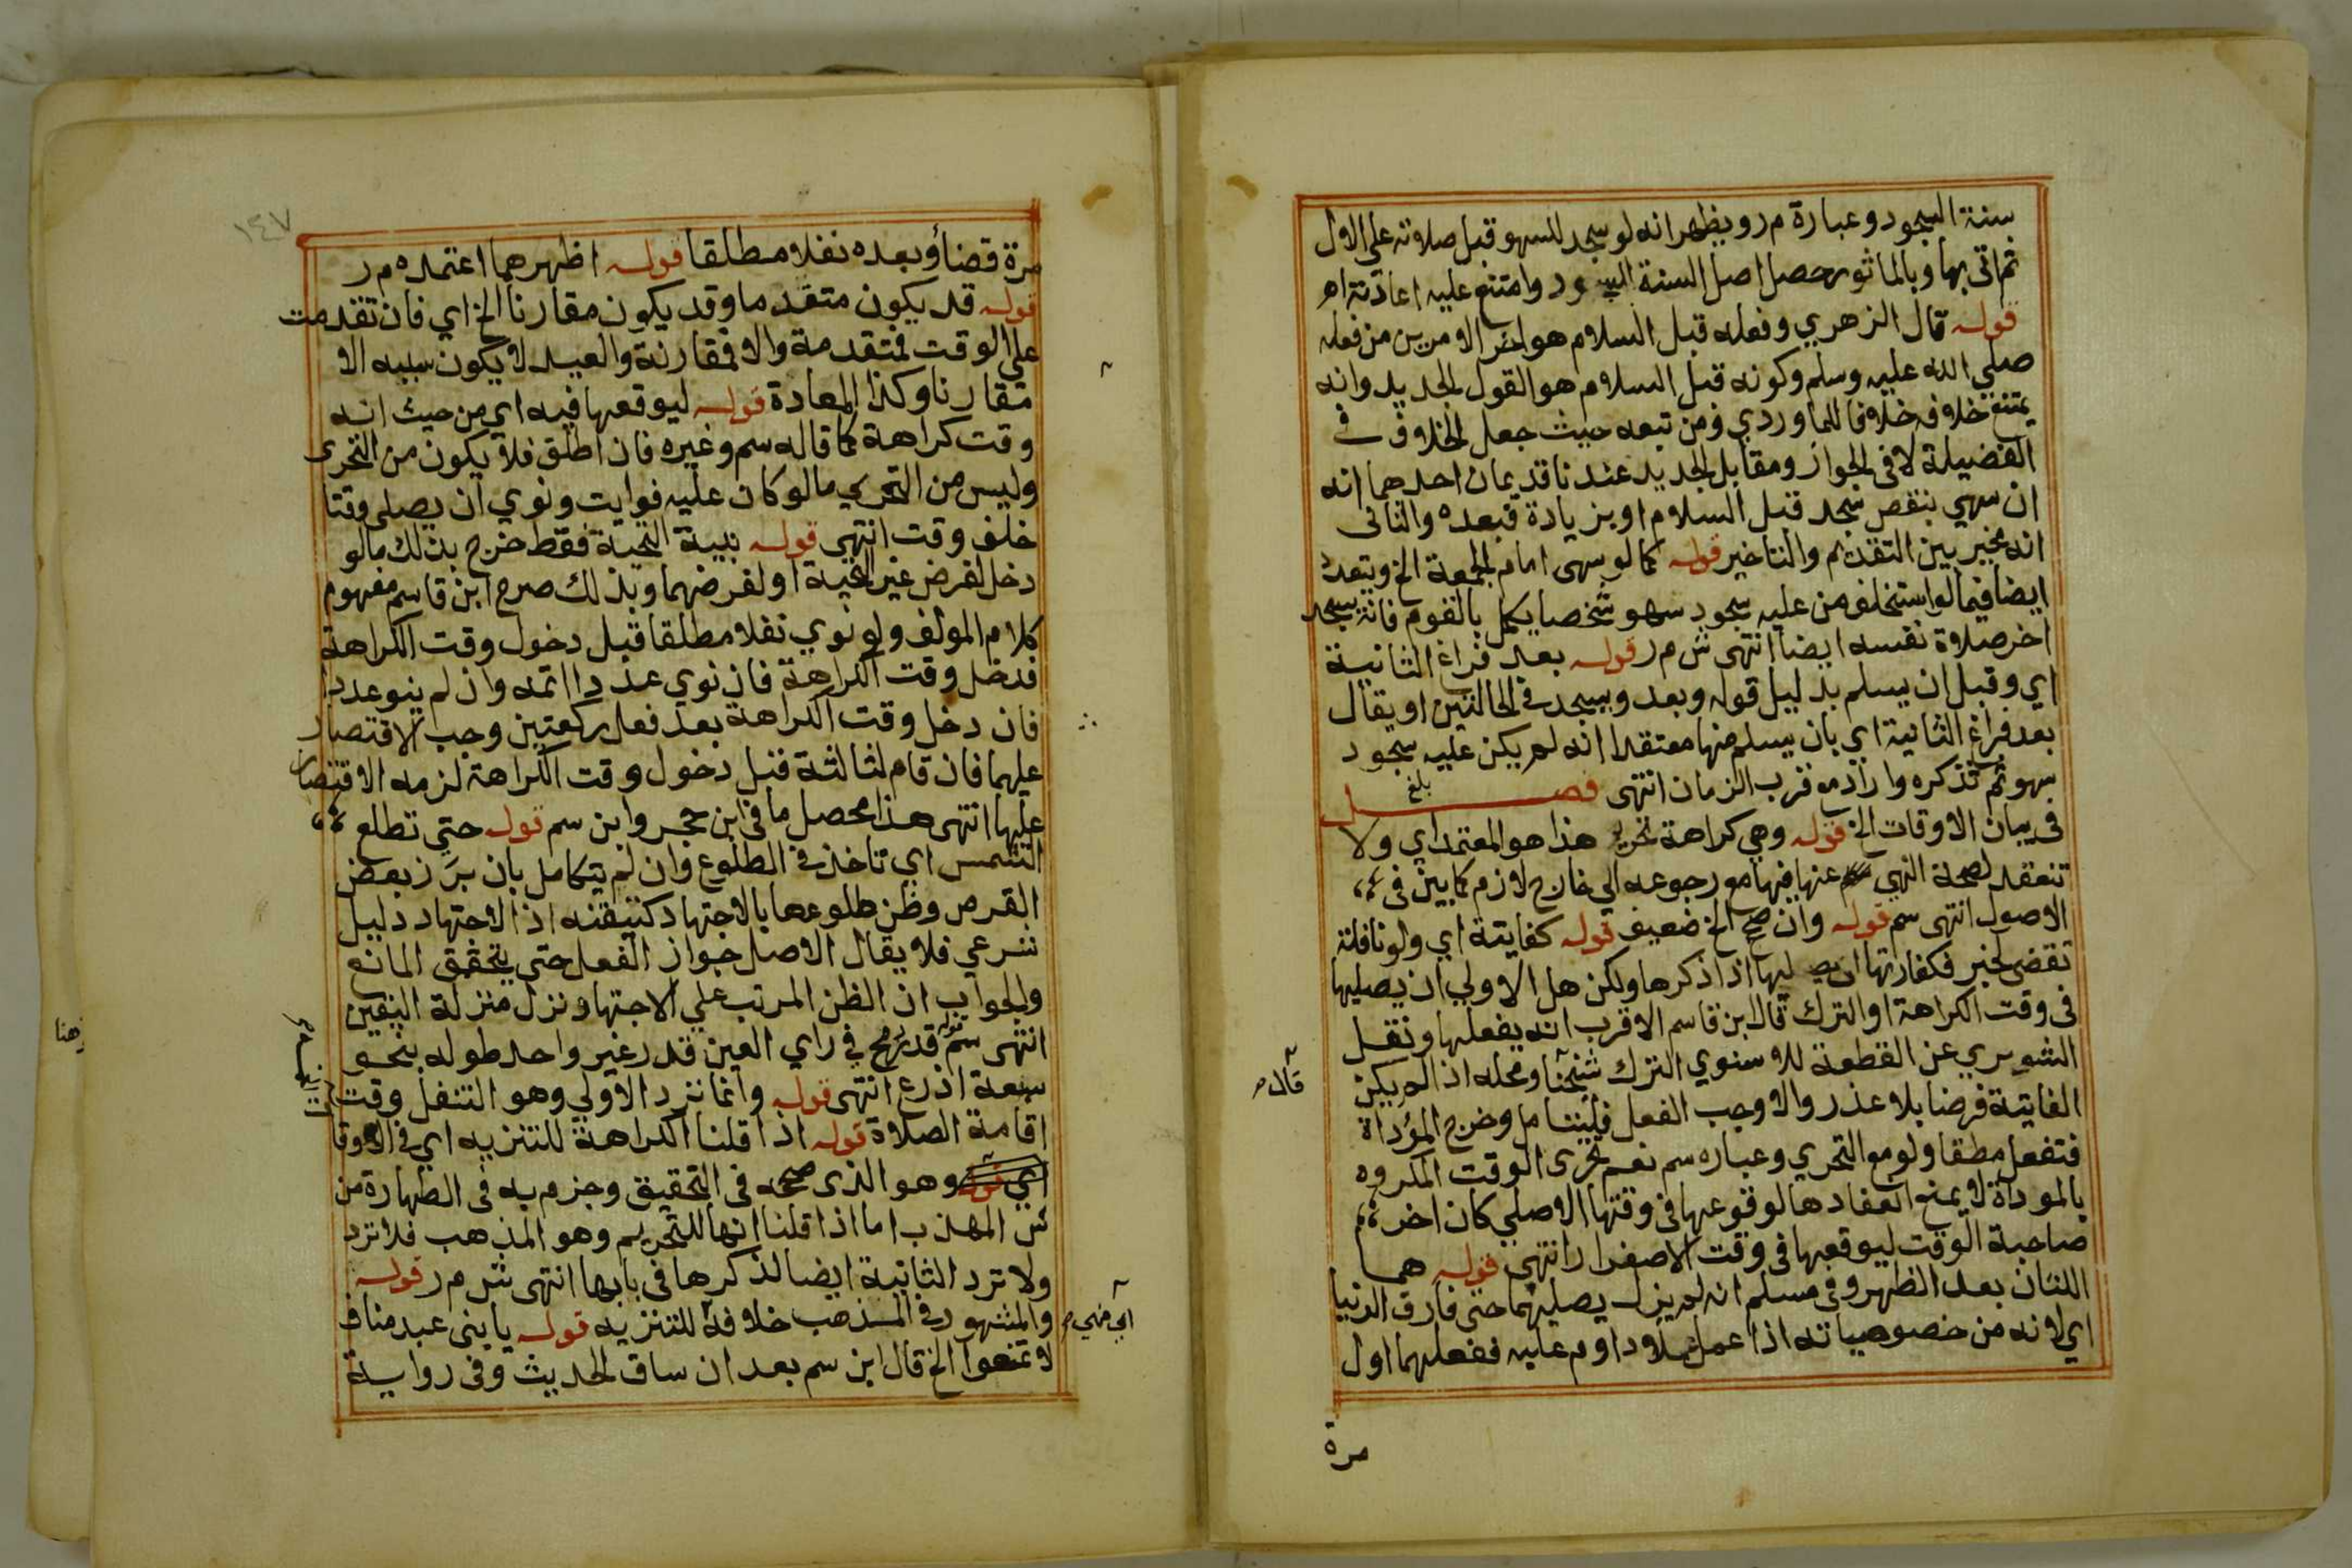 سنة السجود وعبارة م ر ويظهر انه لو سجد للسهو قبل صلاته على الال
ثم اتى بها وبالماثور حصل اصل السنة السجود وامتنع عليه اعادته اه
قوله قال الزهري وفعله قبل السلام هو اخر الامرين من فعله
صلي الله عليه وسلم وكونه قبل السلام هو القول الجديد وانه
يمتنع خلافه خلافا للماوردي ومن تبعه حيث جعل الخلاف في
الفضيلة لا في الجواز ومقابل الجديد عندنا قديمان احدهما انه
ان سهي بنقص سجد قبل السلام او بزيادة فبعده والثاني
انه مخير بين التقديم والتاخير قوله كما لو سهى امام الجمعة الخ ويتعدد
ايضا فيما لو استخلف من عليه سجود سهو شخصا يكمل بالقوم فانه يسجد
اخر صلاة نفسه ايضا انتهى ش م ر قوله بعد فراغ الثانية
اي وقبل ان يسلم بدليل قوله وبعد ويسجد في الحالتين او يقال
بعد فراغ الثانية اي بان يسلم منها معتقدا انه لم يكن عليه سجود
سهو ثم تذكره واراد مع قرب الزمان انتهى فصل بلغ
في بيان الاوقات الخ قوله وهي كراهة تحريم هذا هو المعتمد اي ولا
تنعقد لصحة النهي عنها فيها مع رجوعه الي خارج لازم كما بين في
الاصول انتهى سم قوله وان صح الخ ضعيف قوله كفايتة اي ولو نافلة
تقضى لخبر فكفارتها ان يصليها اذا ذكرها ولكن هل الاولي ان يصليها
في وقت الكراهة او الترك قال ابن قاسم الاقرب انه يفعلها ونقل
الشوبري عن القطعة للاسنوي الترك شيخنا ومحله اذا لم يكن
قال م
الفايتة فرضا بلا عذر والا وجب الفعل فليتامل وخرج المؤداة
فتفعل مطقا ولو مع التحري وعباره سم نعم تحرى الوقت المكروه
بالموداة لا يمنع انعقادها لوقوعها في وقتها الاصلي كان اخر
صاحبة الوقت ليوقعها في وقت الاصفرار انتهى قوله هما
اللتان بعد الظهر وفي مسلم انه لم يزل يصليهما حتى فارق الدنيا
اي لانه من خصوصياته اذا عمل عملا داوم عليه ففعلهما اول
مرة
١٤٧
مرة قضاؤ وبعده نفلا مطلقا قوله اظهرهما اعتمده م ر
قوله قد يكون متقدما وقد يكون مقارنا الخ اي فان تقدمت
على الوقت فمتقدمة والا فمقارنة والعيد لا يكون سببه الا
مقارنا وكذا المعادة قوله ليوقعها فيه اي من حيث انه
وقت كراهة كما قاله سم وغيره فان اطلق فلا يكون من التحرى
وليس من التحري ما لو كان عليه فوايت ونوي ان يصلي وقتا
خلف وقت انتهى قوله بنية التحية فقط خرج بذلك ما لو
دخل لغرض غير التحية او لغرضهما وبذلك صرح ابن قاسم مفهوم
كلام المولف ولو نوي نفلا مطلقا قبل دخول وقت الكراهة
فدخل وقت الكراهة فان نوي عددا اتمه وان لم ينو عددا
فان دخل وقت الكراهة بعد فعل ركعتين وجب الاقتصار
عليهما فان قام لثالثة قبل دخول وقت الكراهة لزمه الاقتصار
عليها انتهى هذا محصل ما في ابن حجر وابن سم قوله حتي تطلع
الشمس اي تاخذ في الطلوع وان لم يتكامل بان برز بعض
القرص وظن طلوعها بالاجتهاد كتيقنه اذ الاجتهاد دليل
شرعي فلا يقال الاصل جواز الفعل حتى يتحقق المانع
والجواب ان الظن المرتب علي الاجتهاد نزل منزلة اليقين
انتهى سم قوله قد رمح في راي العين قدر غير واحد طوله بنحو
سبعة اذرع انتهى قوله وانما نزد الاولي وهو التنفل وقت
اقامة الصلاة قوله اذا قلنا الكراهة للتنزيه اي في الاوقا
اي قوله وهو الذى صححه في التحقيق وجزم به في الطهارة من
ش المهذب اما اذا قلنا انها للتحريم وهو المذهب فلا ترد
ولا ترد الثانية ايضا لذكرها في بابها انتهى ش م ر قوله
والمشهور في المذهب خلافه للتنزيه قوله يا بنى عبد مناف
لا تمنعوا الخ قال ابن سم بعد ان ساق الحديث وفي رواية